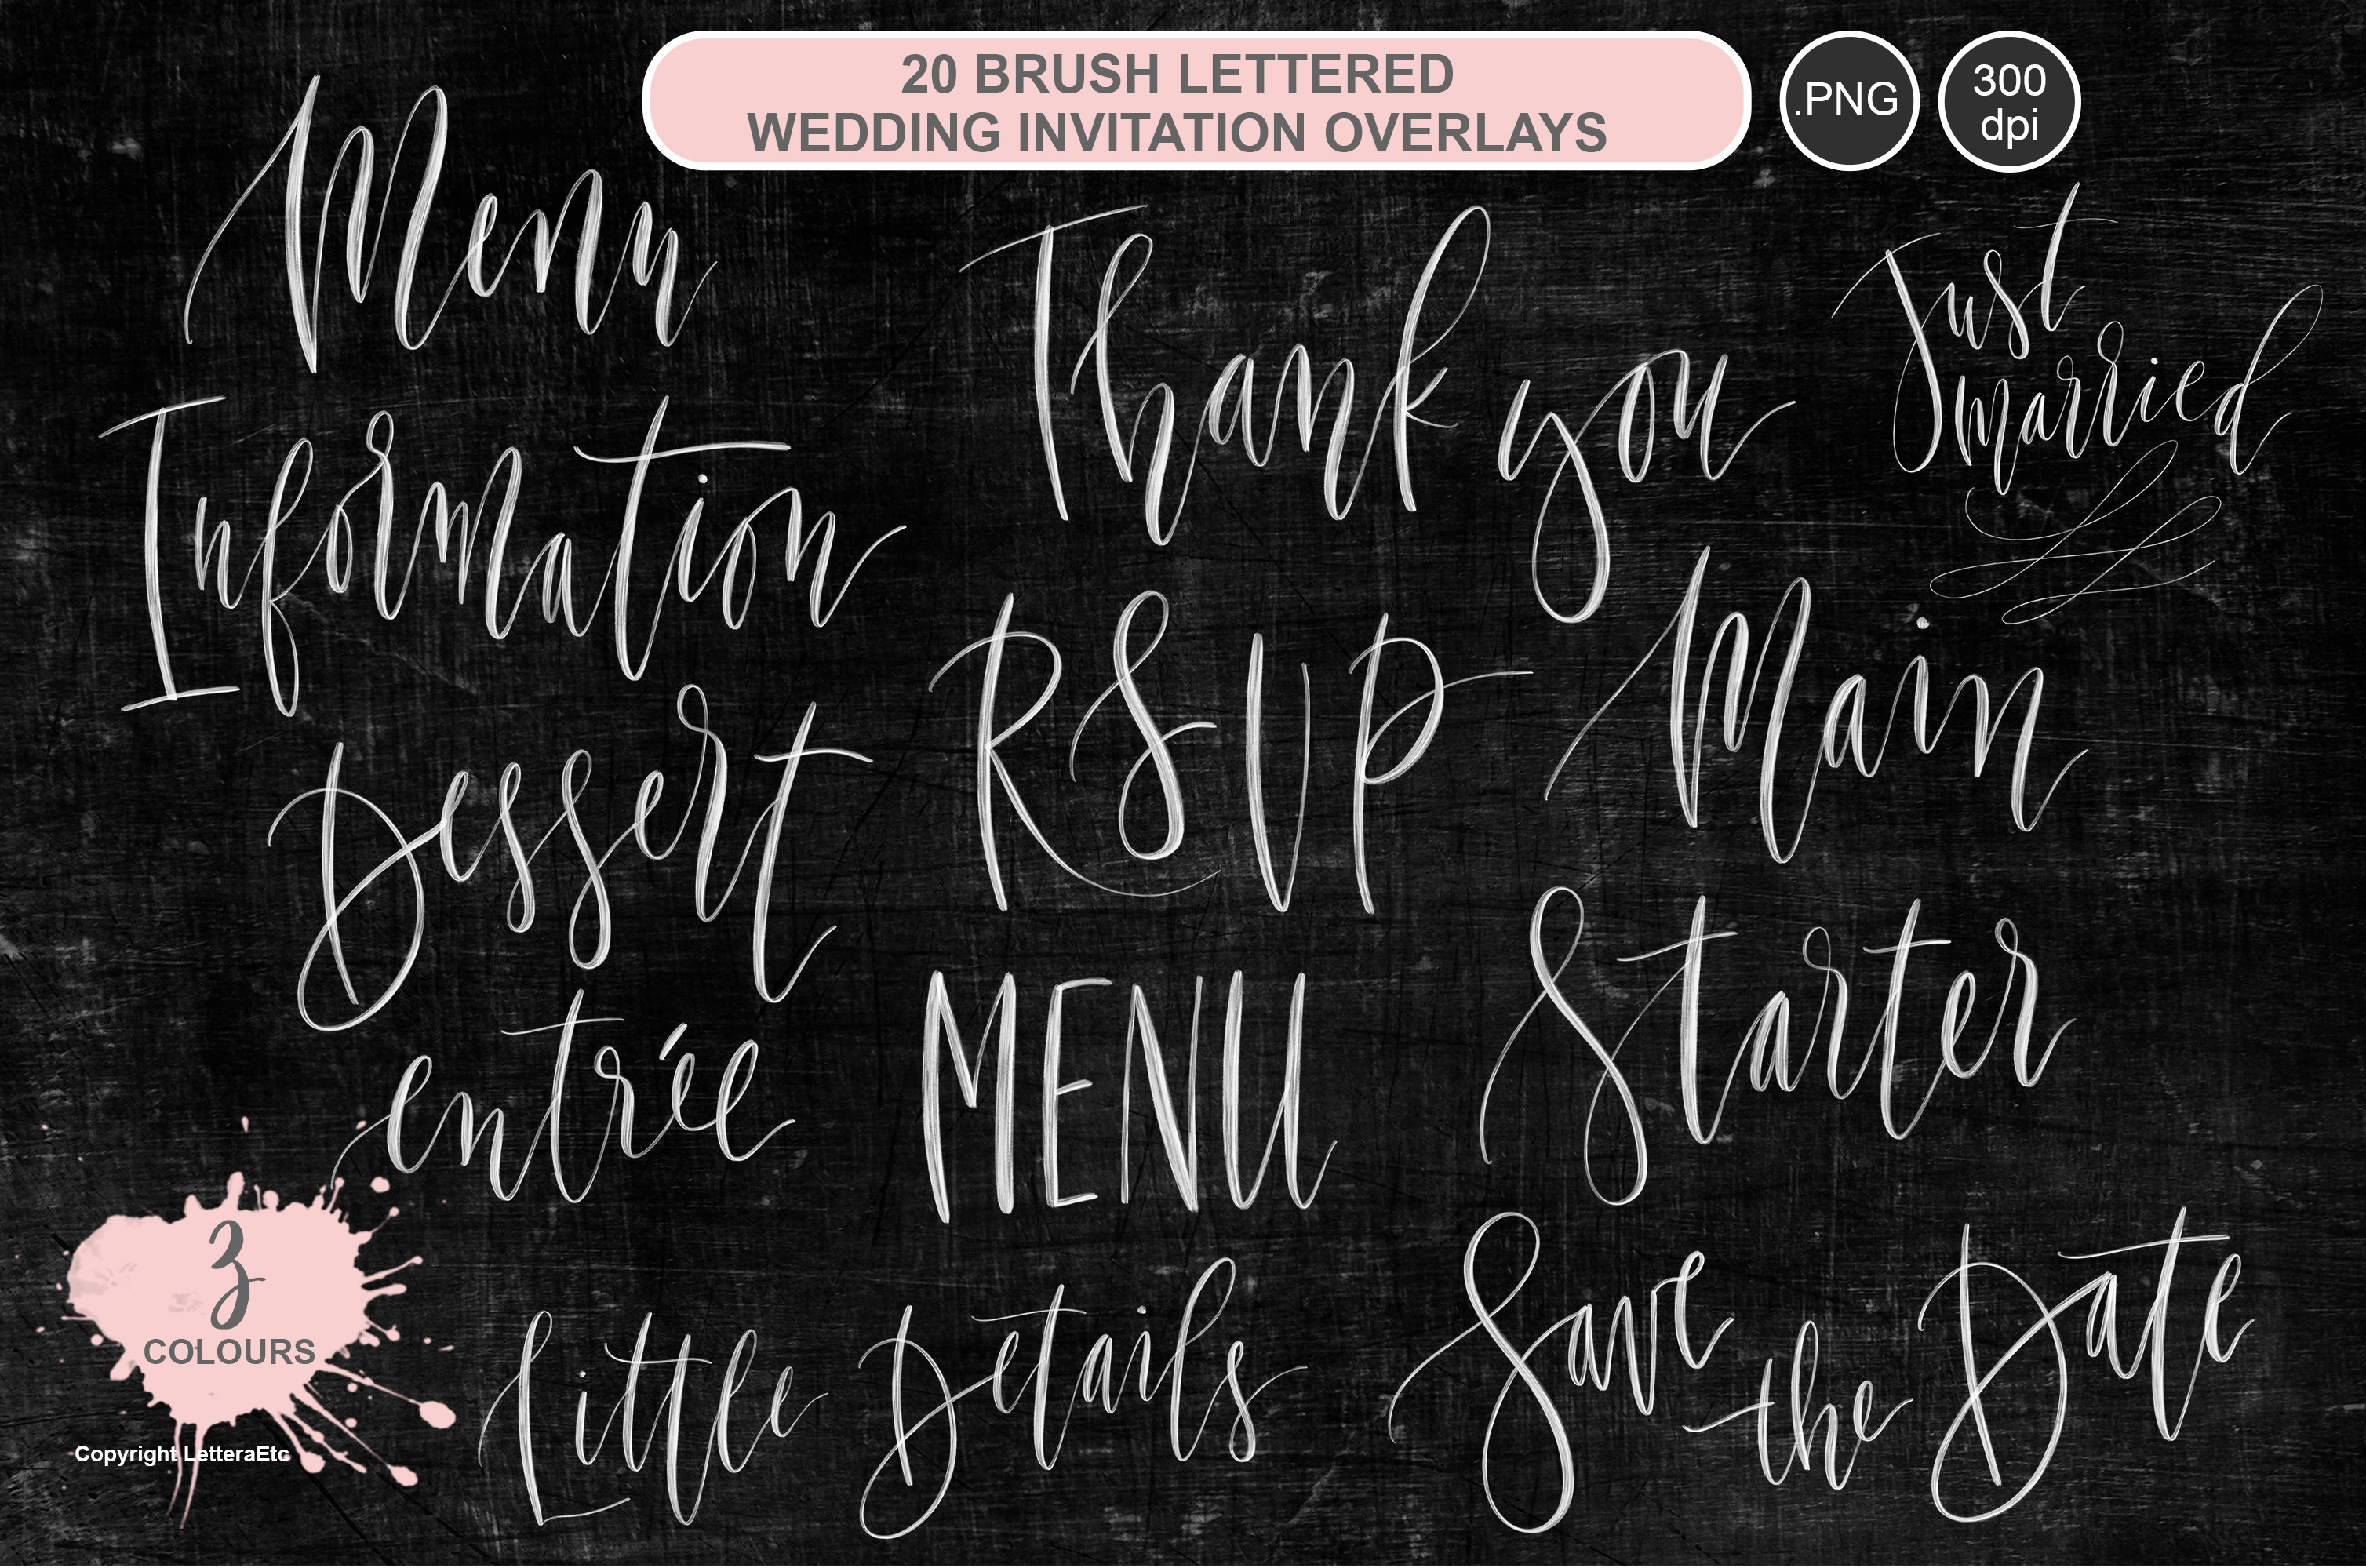 20 BRUSH LETTERED
WEDDING INVITATION OVERLAYS
.PNG
300
dpi
Menu
Thank you
Just
married
Information
RSVP
Main
Dessert
entrée
MENU
Starter
3
COLOURS
Little Details
Save
the
Date
Copyright LetteraEtc